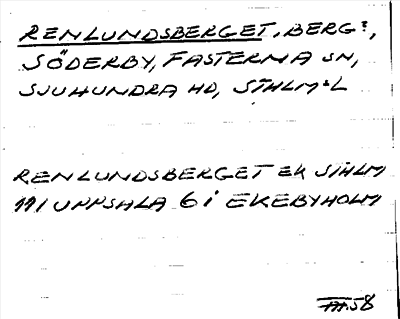 RENLUNDSBERGET, BERG?,
SÖDERBY, FASTERNA SN,
SJUHUNDRA HD, STHLMS L
RENLUNDSBERGET EK STHLM
111 UPPSALA 6 i EKEBYHOLM
58